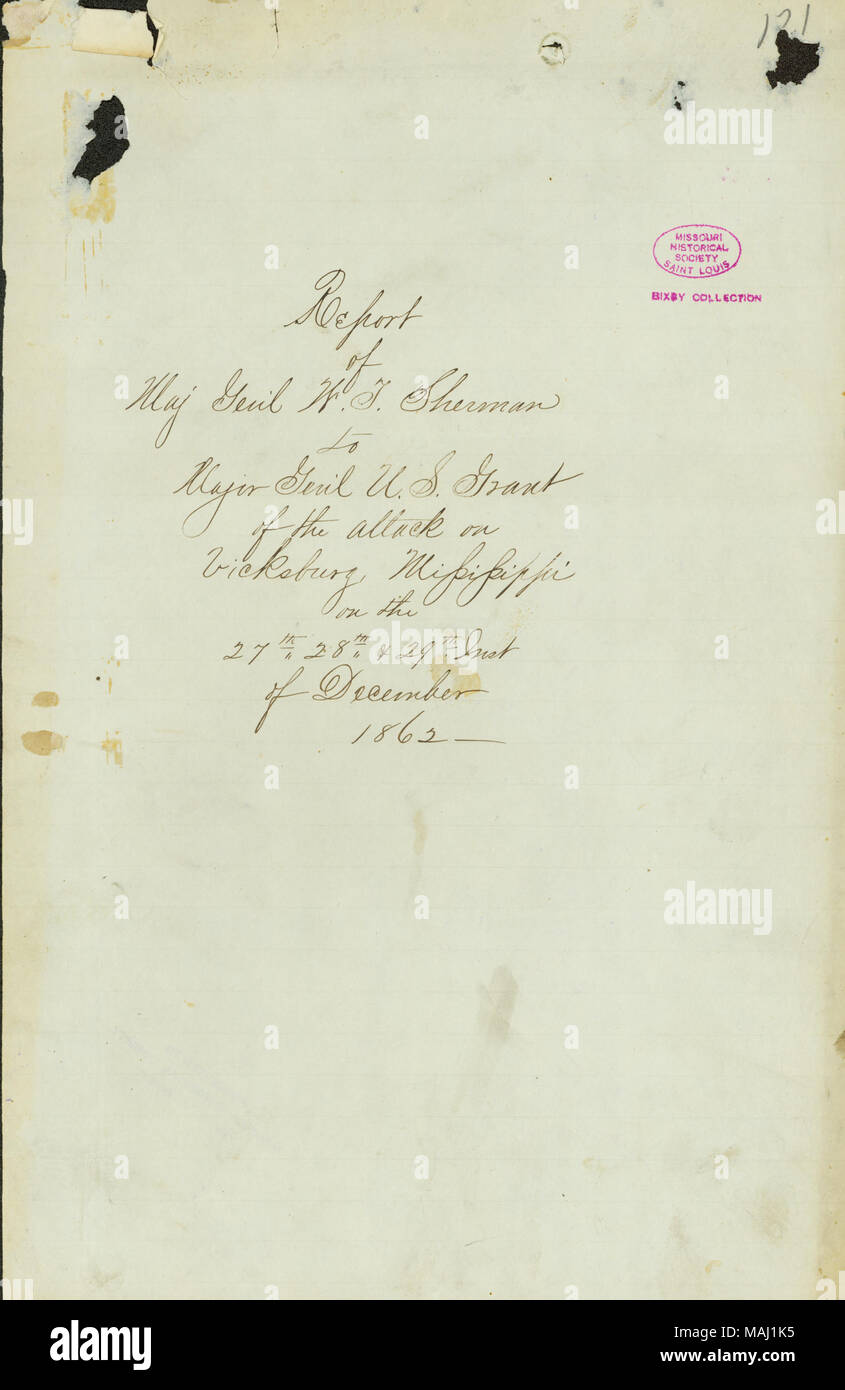 121
MISSOURI
HISTORICAL
SOCIETY
SAINT LOUIS
BIXBY COLLECTION
Report
of
Maj Genl W. T. Sherman
to
Major Genl U. S. Grant
of the attack on
Vicksburg, Mississippi
on the
27th 28th & 29th Inst
of December
1862—
alamy
Image ID: MAJ1K5
www.alamy.com